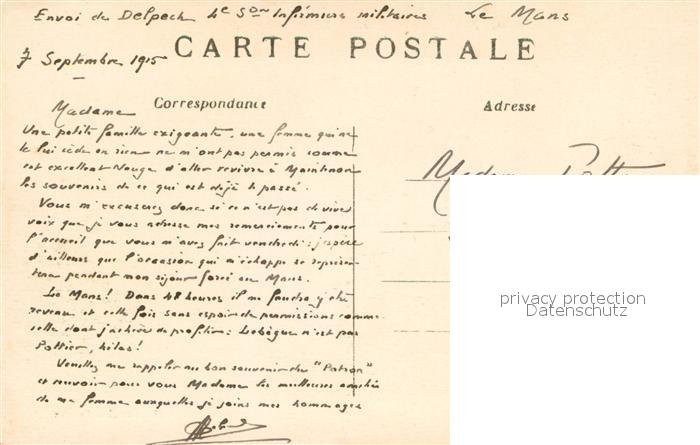 Envoi de Delpech 4e Son Infirmiers militaires Le Mans
CARTE POSTALE
7 Septembre 1915
Correspondance
Adresse
Madame
Une petite famille exigeante, une femme qui ne
le lui cède en rien ne m'ont pas permis comme
cet excellent Nouge d'aller revivre à Maintenon
les souvenirs de ce qui est déjà le passé.
Vous m'excuserez donc si ce n'est pas de vive
voix que je vous adresse mes remerciements pour
l'accueil que vous m'avez fait vendredi : j'espère
d'ailleurs que l'occasion qui m'échappe se représen-
tera pendant mon séjour forcé au Mans.
Le Mans ! Dans 48 heures il me faudra y être
revenu et cette fois sans espoir de permissions comme
celle dont j'achève de profiter : Lebègue n'est pas
Pottier, hélas !
Veuillez me rappeler au bon souvenir du "Patron"
et recevoir pour vous Madame les meilleures amitiés
de ma femme auxquelles je joins mes hommages
Madame
privacy protection
Datenschutz